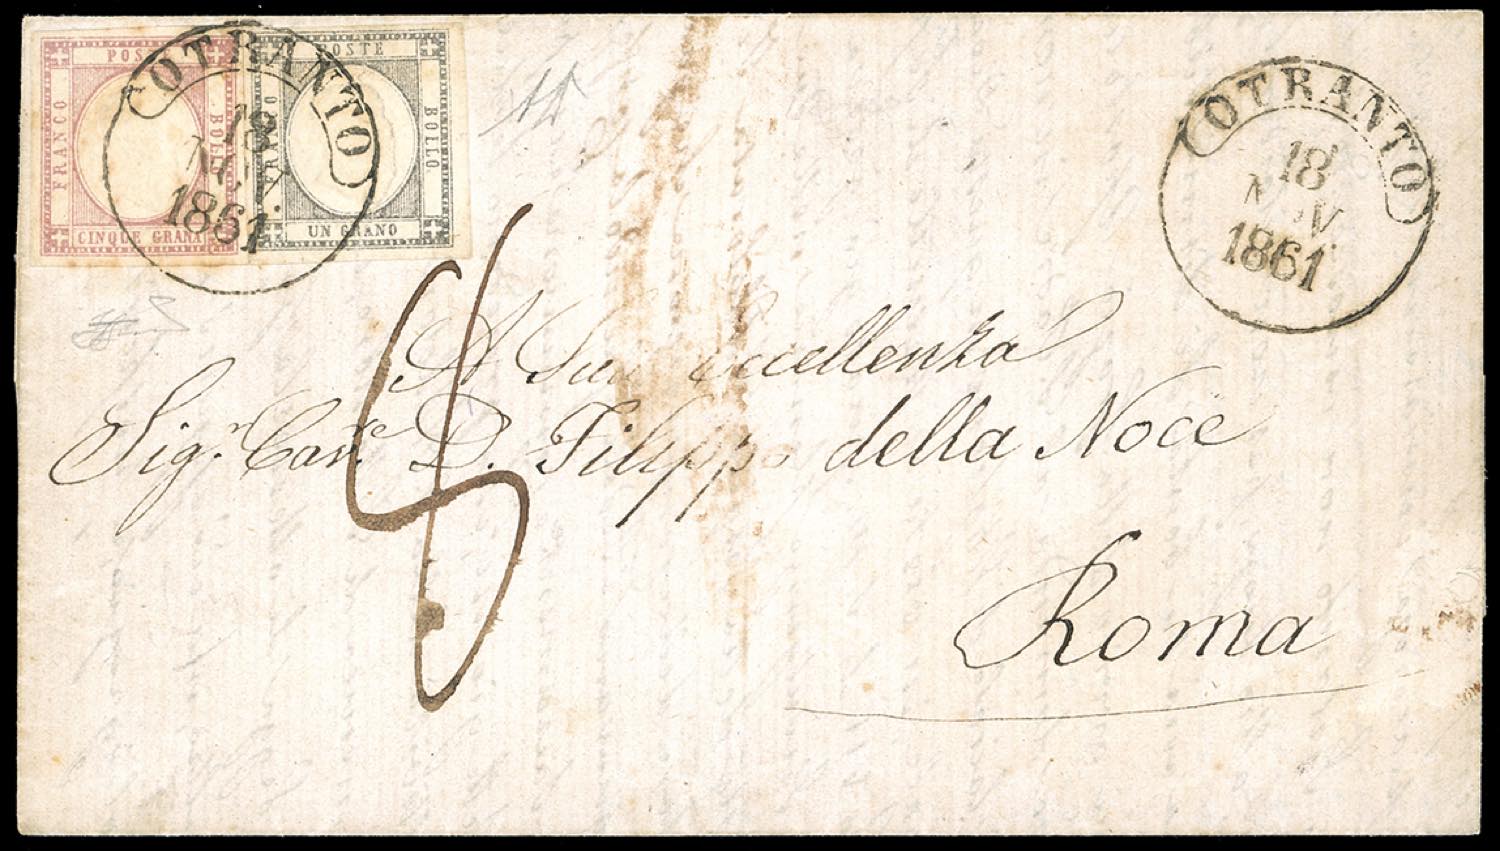 POSTE
FRANCO
BOLLO
CINQUE GRANA
POSTE
FRANCO
BOLLO
UN GRANO
OTRANTO
18
NOV
1861
OTRANTO
18
NOV
1861
A Sua Eccellenza
Sig.r Cav.re D. Filippo della Noce
Roma